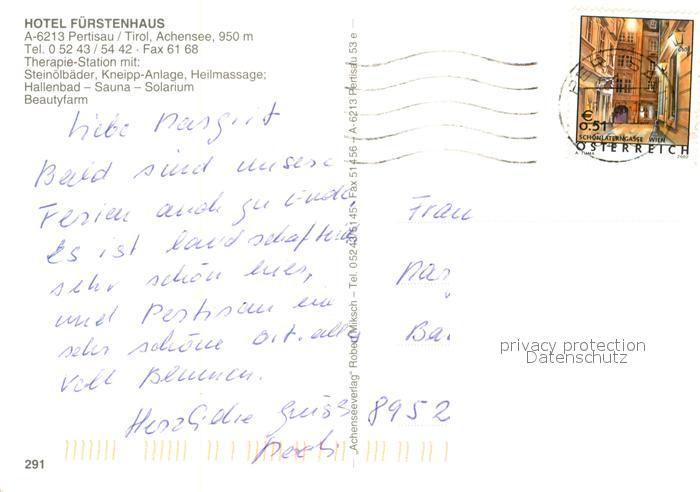 HOTEL FÜRSTENHAUS
A-6213 Pertisau / Tirol, Achensee, 950 m
Tel. 0 52 43 / 54 42 · Fax 61 68
Therapie-Station mit:
Steinölbäder, Kneipp-Anlage, Heilmassage;
Hallenbad – Sauna – Solarium
Beautyfarm
Liebe Margrit
Bald sind unsere
Ferien auch zu Ende.
Es ist landschaftlich
sehr schön hier,
und Pertisau ein
sehr schöne Ort. alles
voll Blumen.
Herzliche Grüsse
291
„Achenseeverlag“ Robert Miksch – Tel. 0 52 43/51 45 · Fax 51 4 56 – A-6213 Pertisau 53 e
€
0.51
SCHÖNLATERNGASSE WIEN
ÖSTERREICH
2002
Frau
Mar
Ba
8952
privacy protection
Datenschutz